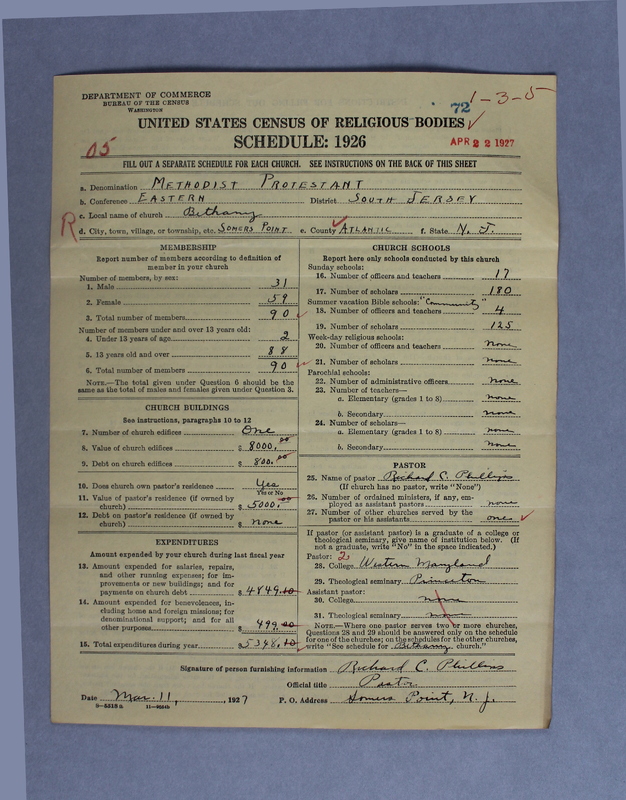 DEPARTMENT OF COMMERCE
BUREAU OF THE CENSUS
WASHINGTON
72 1-3-5
UNITED STATES CENSUS OF RELIGIOUS BODIES
05 SCHEDULE: 1926 APR 22 1927
FILL OUT A SEPARATE SCHEDULE FOR EACH CHURCH. SEE INSTRUCTIONS ON THE BACK OF THIS SHEET
a. Denomination METHODIST PROTESTANT
b. Conference EASTERN District SOUTH JERSEY
c. Local name of church Bethany
R d. City, town, village, or township, etc. SOMERS POINT e. County ATLANTIC f. State N. J.
MEMBERSHIP
Report number of members according to definition of
member in your church
Number of members, by sex:
1. Male 31
2. Female 59
3. Total number of members 90
Number of members under and over 13 years old:
4. Under 13 years of age 2
5. 13 years old and over 88
6. Total number of members 90
NOTE.—The total given under Question 6 should be the
same as the total of males and females given under Question 3.
CHURCH BUILDINGS
See instructions, paragraphs 10 to 12
7. Number of church edifices One
8. Value of church edifices $ 8000.00
9. Debt on church edifices $ 800.00
10. Does church own pastor's residence? Yes
Yes or No
11. Value of pastor's residence (if owned by
church) $ 5000.00
12. Debt on pastor's residence (if owned by
church) $ none
EXPENDITURES
Amount expended by your church during last fiscal year
13. Amount expended for salaries, repairs,
and other running expenses; for im-
provements or new buildings; and for
payments on church debt $ 4849.10
14. Amount expended for benevolences, in-
cluding home and foreign missions; for
denominational support; and for all
other purposes $ 499.00
15. Total expenditures during year $ 5348.10
CHURCH SCHOOLS
Report here only schools conducted by this church
Sunday schools:
16. Number of officers and teachers 17
17. Number of scholars 180
Summer vacation Bible schools: "Community"
18. Number of officers and teachers 4
19. Number of scholars 125
Week-day religious schools:
20. Number of officers and teachers none
21. Number of scholars none
Parochial schools:
22. Number of administrative officers none
23. Number of teachers—
a. Elementary (grades 1 to 8) none
b. Secondary none
24. Number of scholars—
a. Elementary (grades 1 to 8) none
b. Secondary none
PASTOR
25. Name of pastor Richard C. Phillips
(If church has no pastor, write "None")
26. Number of ordained ministers, if any, em-
ployed as assistant pastors none
27. Number of other churches served by the
pastor or his assistants one
If pastor (or assistant pastor) is a graduate of a college or
theological seminary, give name of institution below. (If
not a graduate, write "No" in the space indicated.)
Pastor: 2
28. College Western Maryland
29. Theological seminary Princeton
Assistant pastor:
30. College none
31. Theological seminary none
NOTE.—Where one pastor serves two or more churches,
Questions 28 and 29 should be answered only on the schedule
for one of the churches; on the schedules for the other churches,
write "See schedule for Bethany church."
Signature of person furnishing information Richard C. Phillips
Official title Pastor
Date Mar. 11, 1927 P. O. Address Somers Point, N. J.